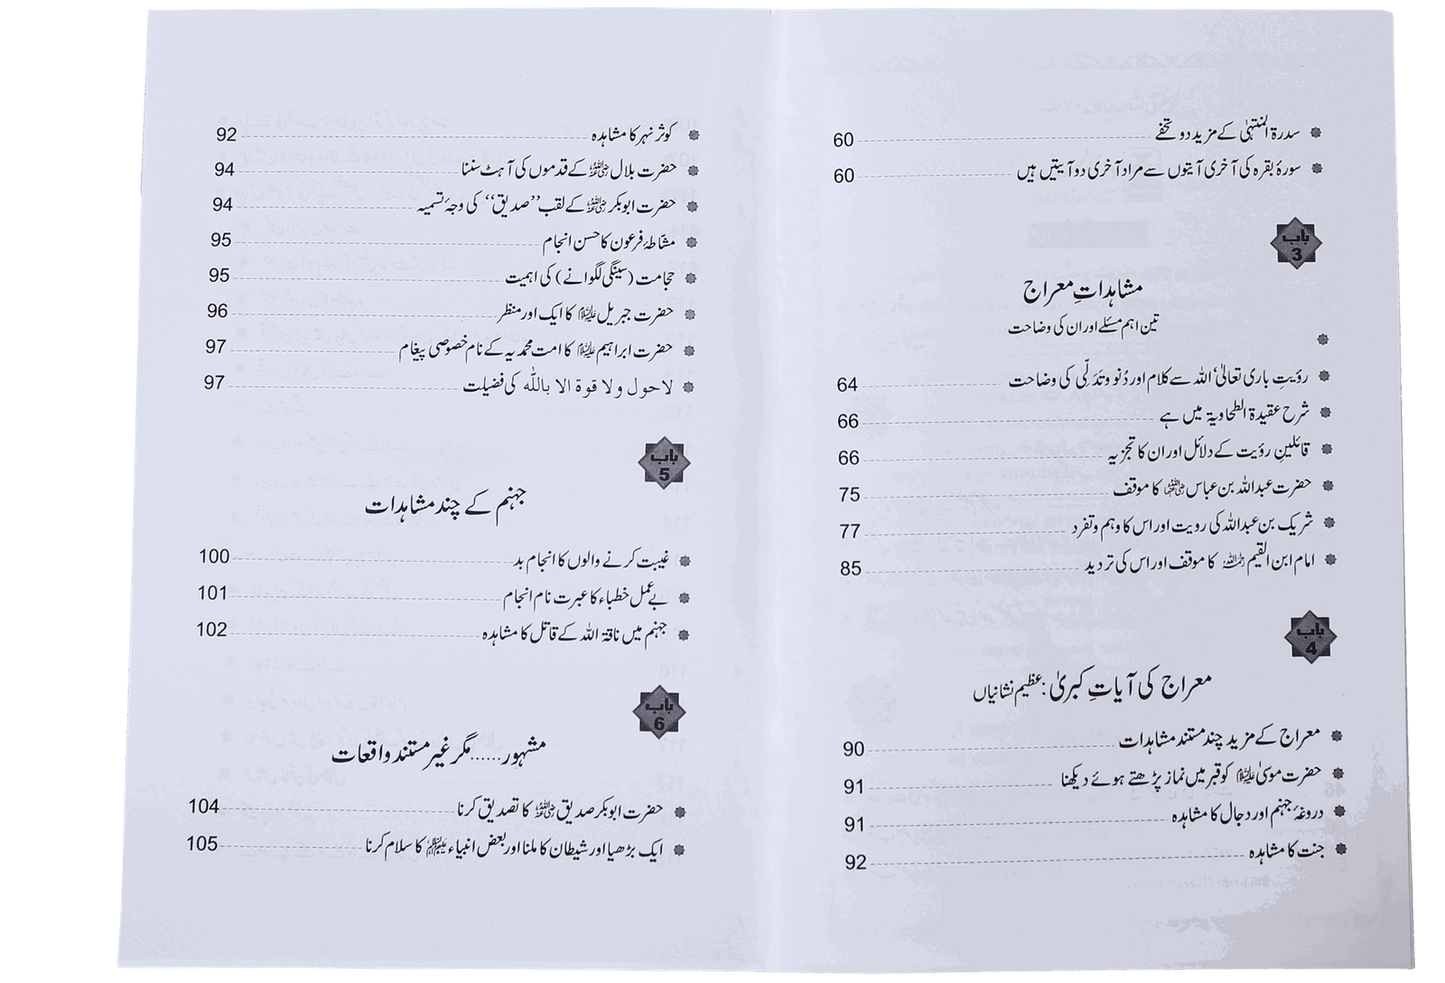 سدرۃ المنتہیٰ کے مزید دو تحفے 60
سورۂ بقرہ کی آخری آیتوں سے مراد آخری دو آیتیں ہیں 60
باب 3
مشاہداتِ معراج
تین اہم مسئلے اور ان کی وضاحت
رؤیتِ باری تعالیٰ، اللہ سے کلام اور دُنو وتَدَلّی کی وضاحت 64
شرح عقیدۃ الطحاویۃ میں ہے 66
قائلینِ رؤیت کے دلائل اور ان کا تجزیہ 66
حضرت عبداللہ بن عباس رضی اللہ عنہما کا موقف 75
شریک بن عبداللہ کی رویت اور اس کا وہم وتفرد 77
امام ابن القیم رحمہ اللہ کا موقف اور اس کی تردید 85
باب 4
معراج کی آیاتِ کبریٰ: عظیم نشانیاں
معراج کے مزید چند مستند مشاہدات 90
حضرت موسیٰ علیہ السلام کو قبر میں نماز پڑھتے ہوئے دیکھنا 91
دروغۂ جہنم اور دجال کا مشاہدہ 91
جنت کا مشاہدہ 92
کوثر نہر کا مشاہدہ 92
حضرت بلال رضی اللہ عنہ کے قدموں کی آہٹ سننا 94
حضرت ابوبکر رضی اللہ عنہ کے لقب ”صدیق“ کی وجۂ تسمیہ 94
مشّاطۂ فرعون کا حسن انجام 95
حجامت (سینگی لگوانے) کی اہمیت 95
حضرت جبریل علیہ السلام کا ایک اور منظر 96
حضرت ابراہیم علیہ السلام کا امت محمدیہ کے نام خصوصی پیغام 97
لاحول ولا قوۃ الا باللّٰہ کی فضیلت 97
باب 5
جہنم کے چند مشاہدات
غیبت کرنے والوں کا انجام بد 100
بے عمل خطباء کا عبرت نام انجام 101
جہنم میں ناقۃ اللہ کے قاتل کا مشاہدہ 102
باب 6
مشہور......مگر غیر مستند واقعات
حضرت ابوبکر صدیق رضی اللہ عنہ کا تصدیق کرنا 104
ایک بڑھیا اور شیطان کا ملنا اور بعض انبیاء علیہم السلام کا سلام کرنا 105